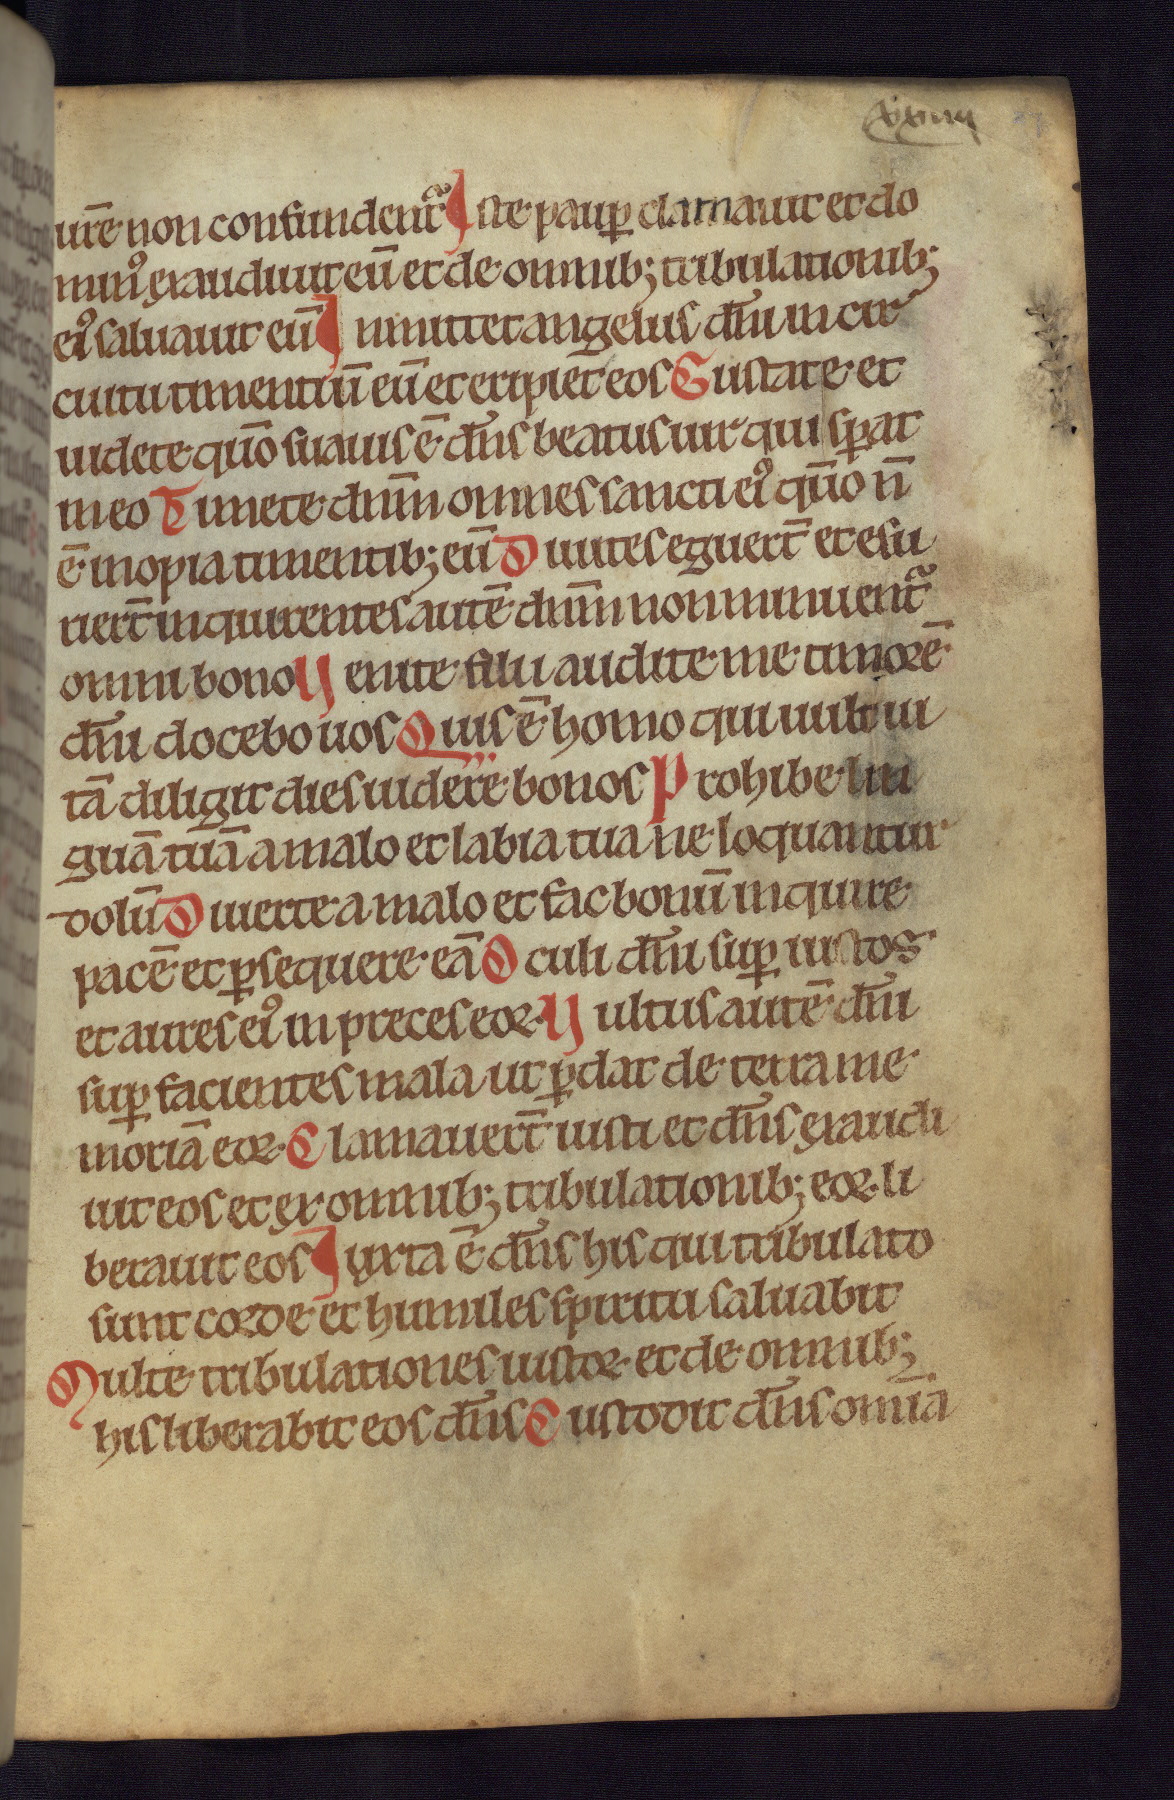 xxiiii
ur̄e non confundent᷑ Iste paup̲ clamauit et do
minꝰ exaudiuit eū et de omnib; tribulationib;
eiꝰ saluauit eū Inmittet angelus dn̄i in cir
cuitu timentiū eū et eripiet eos Gustate et
uidete qūo suauis ē dn̄s beatus uir qui sp̲at
in eo Timete dn̄m omnes sancti eiꝰ qūo n̄
ē inopia timentib; eū Diuites eguert̄ et esu
riert̄ inquirentes autē dn̄m non minuent᷑
omni bono Uenite filii audite me timorē
dn̄i docebo uos Quis ē homo qui uult ui
tā diligit dies uidere bonos Prohibe lin
guā tuā a malo et labia tua ne loquantur
dolū Diuerte a malo et fac bonū inquire
pacē et p̲sequere eā Oculi dn̄i sup̲ iustos
et aures eiꝰ in preces eoꝝ Uultus autē dn̄i
sup̲ facientes mala ut p̲dat de terra me
moriā eoꝝ Clamauert̄ iusti et dn̄s exaudi
uit eos et ex omnib; tribulationib; eoꝝ li
berauit eos Iuxta ē dn̄s his qui tribulato
sunt corde et humiles spiritu saluabit
Multe tribulationes iustoꝝ et de omnib;
his liberabit eos dn̄s Custodit dn̄s omīa